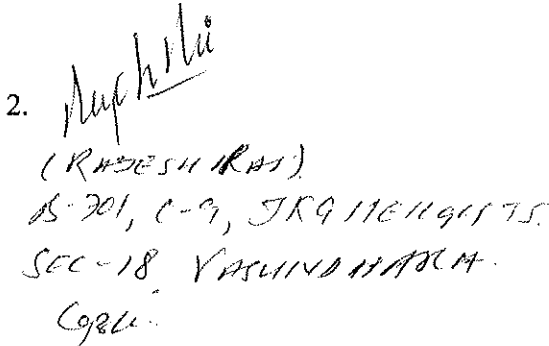 2.
(RAJESH RAI)
B-701, C-9, JKG HEIGHTS.
SEC-18 VASUNDHARA.